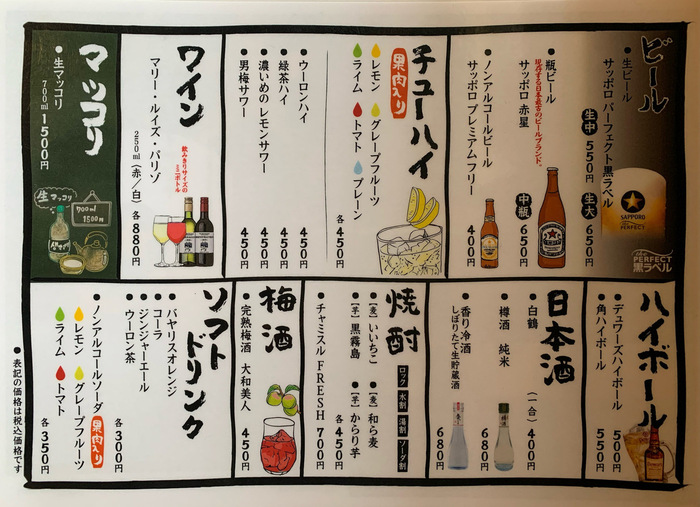 ビール
●生ビール
サッポロ パーフェクト黒ラベル
生中 550円
生大 650円
SAPPORO
PERFECT
The PERFECT
黒ラベル
●瓶ビール
現存する日本最古のビールブランド。
サッポロ 赤星
中瓶 650円
●ノンアルコールビール
サッポロ プレミアム フリー
400円
チューハイ
果肉入り
レモン グレープフルーツ
ライム トマト プレーン
各450円
●ウーロンハイ 450円
●緑茶ハイ 450円
●濃いめのレモンサワー 450円
●男梅サワー 450円
ワイン
マリー・ルイズ・パリゾ
飲みきりサイズの
ミニボトル
250ml(赤/白) 各880円
マッコリ
●生マッコリ
700ml 1500円
生マッコリ
700ml
1500円
ハイボール
●デュワーズハイボール 500円
●角ハイボール 550円
日本酒
●白鶴 (一合) 400円
●樽酒 純米 680円
●香り冷酒
しぼりたて生貯蔵酒
680円
焼酎
ロック 水割 湯割 ソーダ割
●[麦]いいちこ ●[麦]和ら麦
●[芋]黒霧島 ●[芋]からり芋
各450円
●チャミスル FRESH 700円
梅酒
●完熟梅酒 大和美人 450円
ソフトドリンク
●バヤリスオレンジ
●コーラ
●ジンジャーエール
●ウーロン茶
各300円
●ノンアルコールソーダ 果肉入り
レモン グレープフルーツ
ライム トマト
各350円
●表記の価格は税込価格です